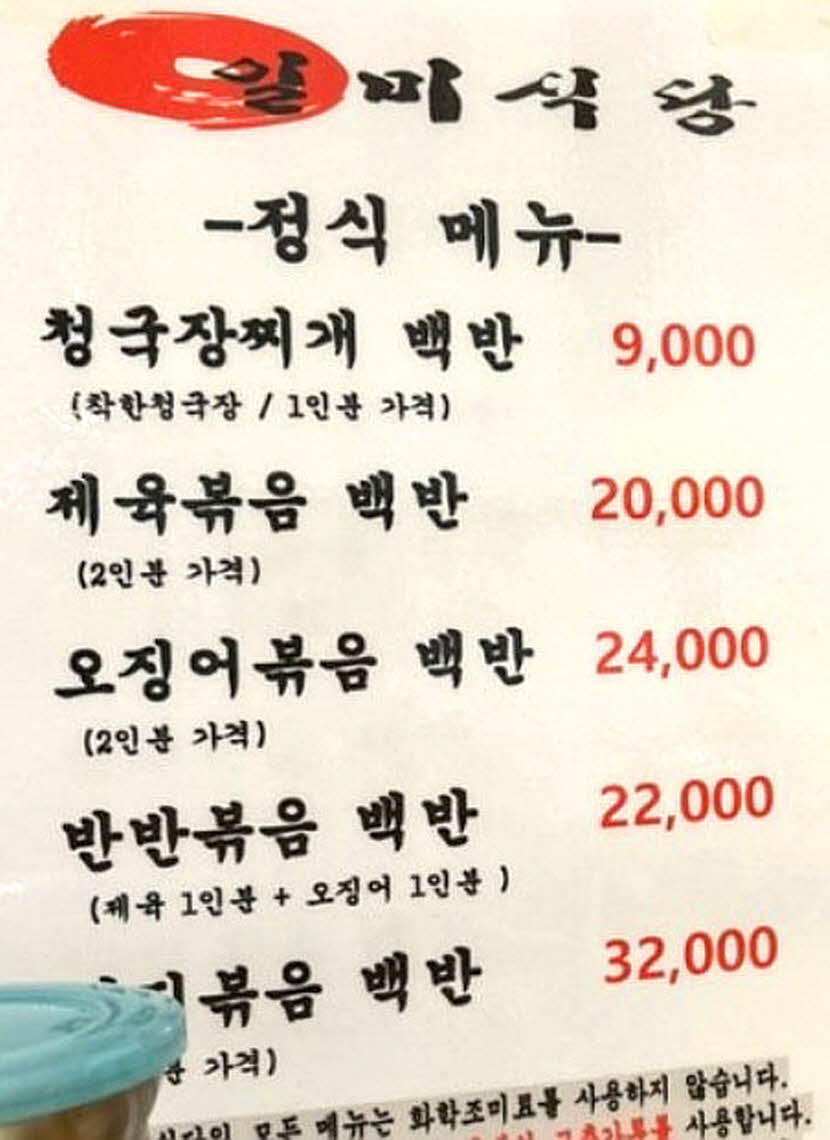 일미식당
-정식 메뉴-
청국장찌개 백반 9,000
(착한청국장 / 1인분 가격)
제육볶음 백반 20,000
(2인분 가격)
오징어볶음 백반 24,000
(2인분 가격)
반반볶음 백반 22,000
(제육 1인분 + 오징어 1인분 )
볶음 백반 32,000
가격)
모든 메뉴는 화학조미료를 사용하지 않습니다.
고춧가루를 사용합니다.